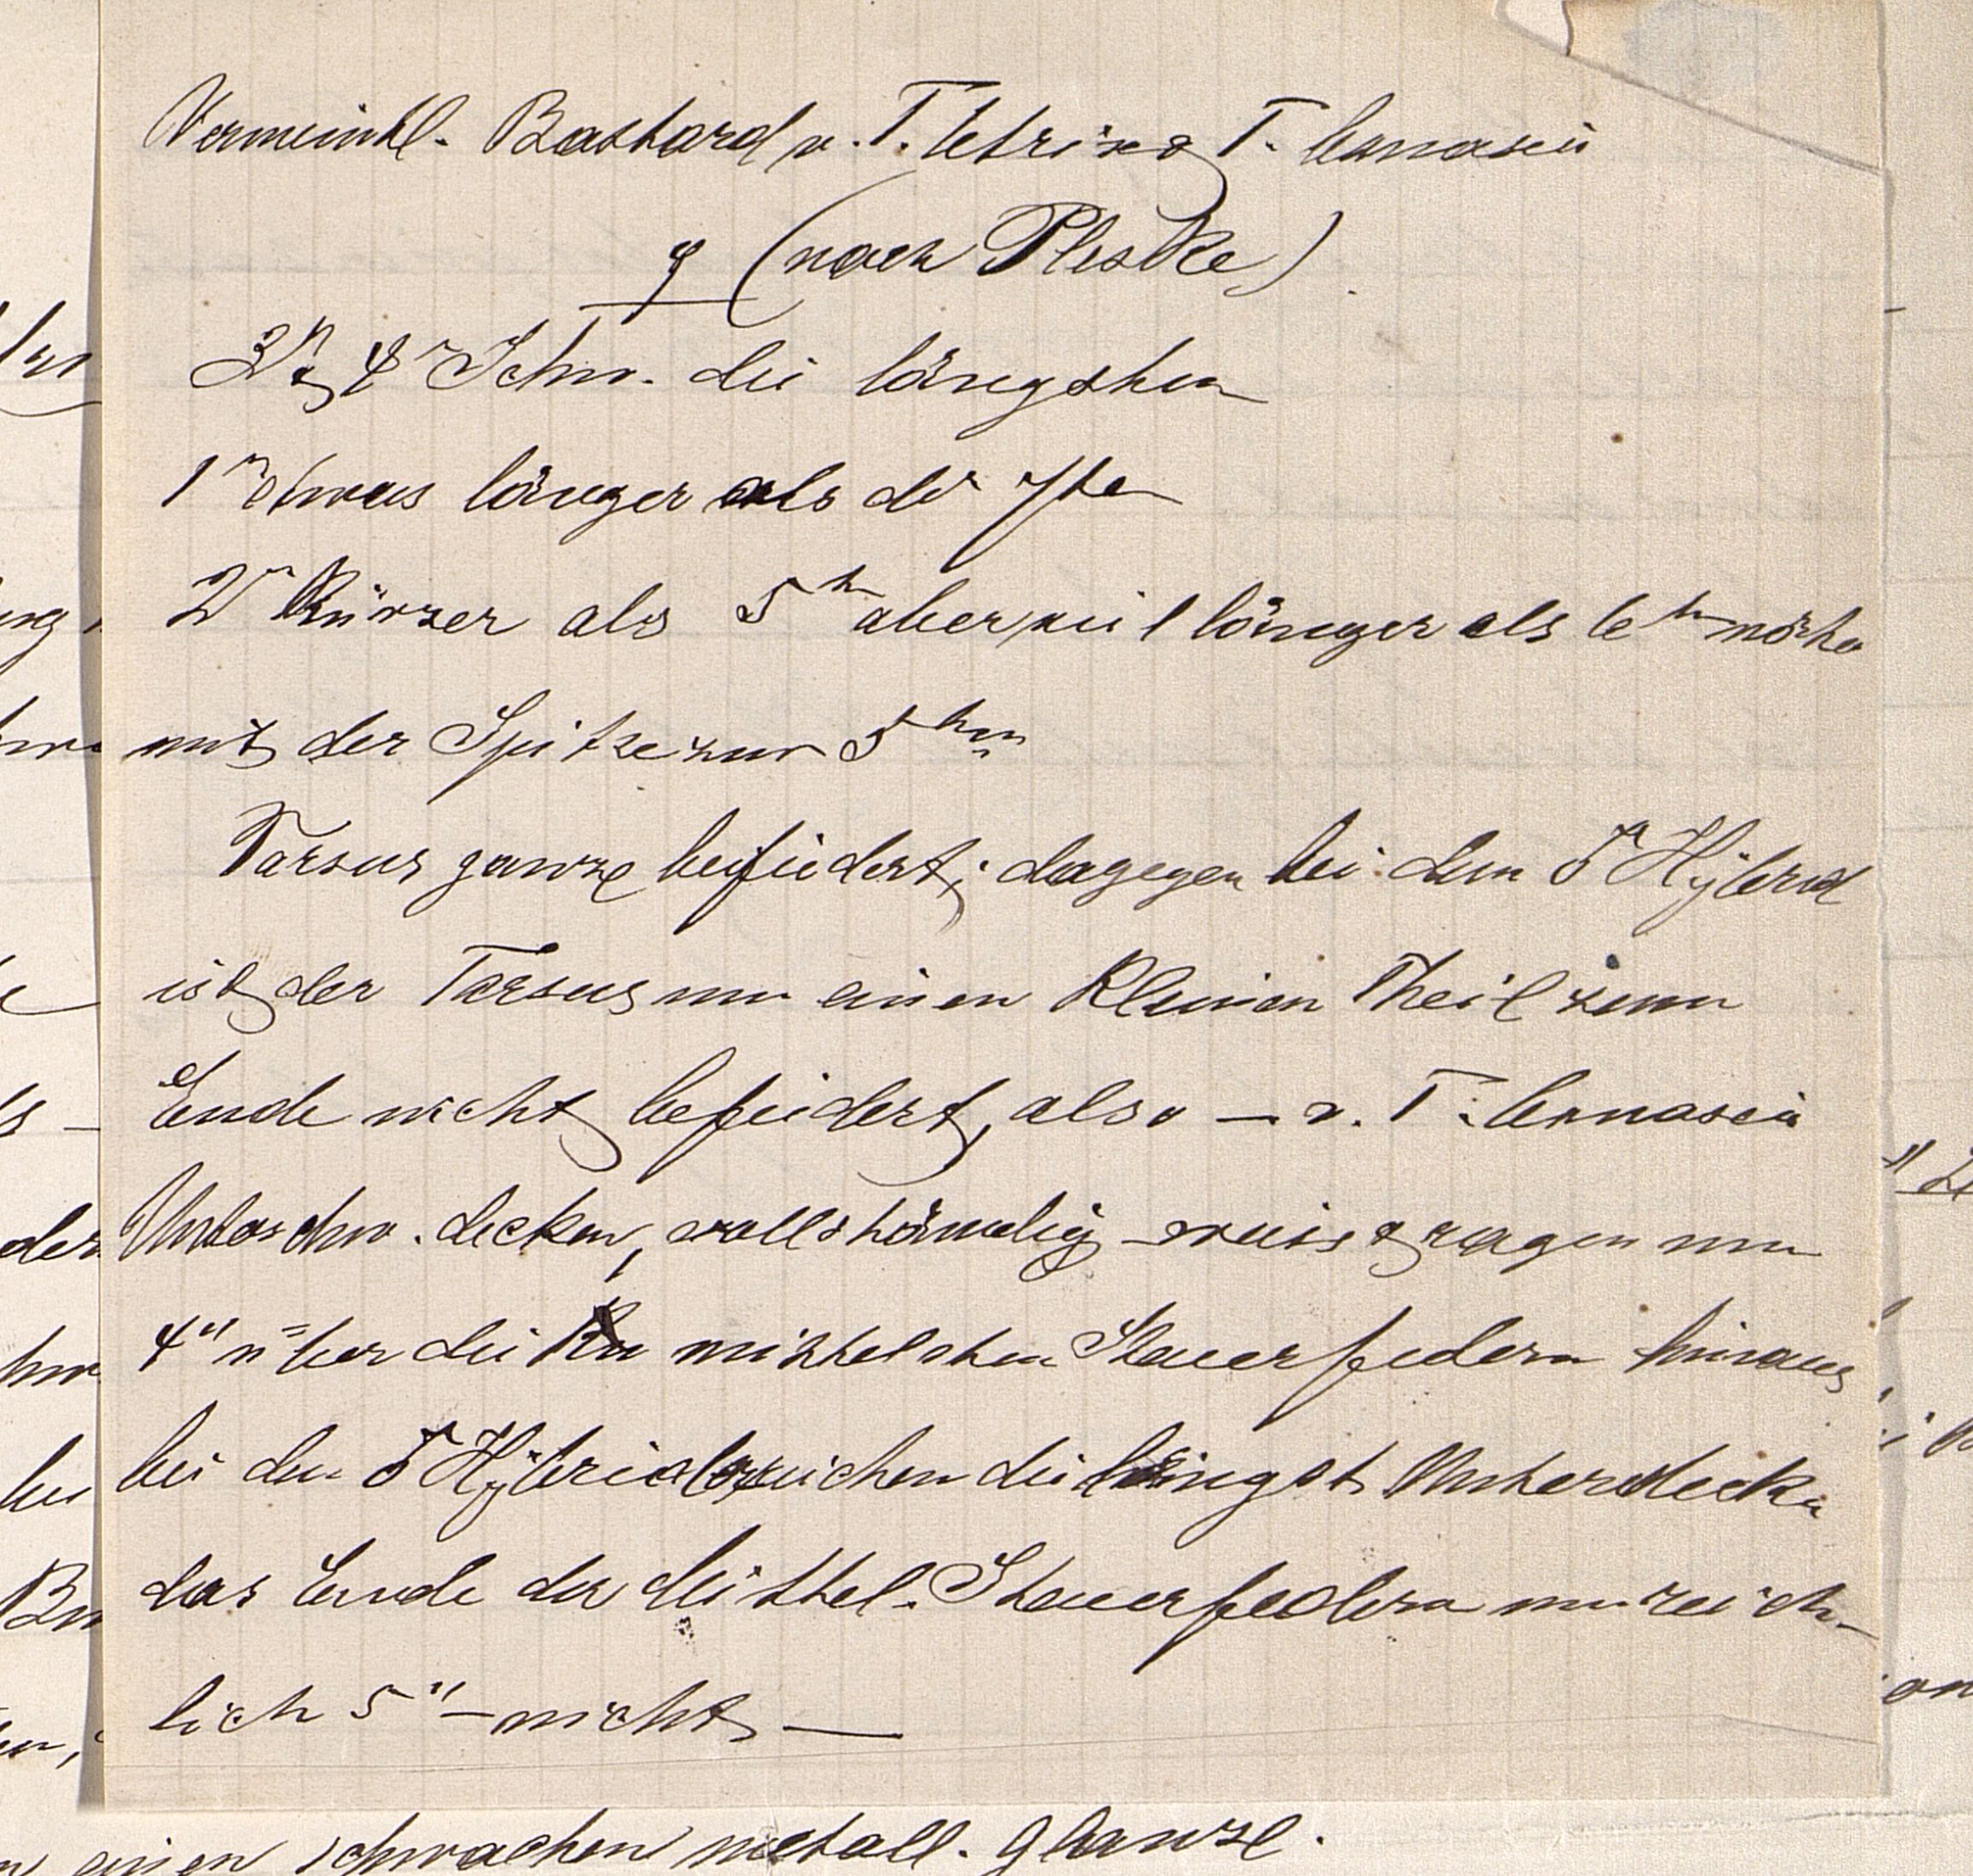 Vermeintl. Bastard v. T. tetrix & T. bonasia
♀ (nach Pleske)
3te & 4te Schw. die längsten
1te etwas länger als die 7te
2te Kürzer als 5te aber viel länger als 6te
mit der Spitze zur 5ten
Tarsus ganz befiedert; dagegen bei dem ♂ Hybrid
ist der Tarsus nur einen Kleinen Theil zum
Ende nicht befiedert, also — v. T. bonasia
Unterschw. decken, vollständig weiss & ragen nur
4" über die mittelsten Steuerfedern hinaus
bei dem ♂ Hybrid reichen die längst. Unterdecken
das Ende der Mittel-Steuerfedern um reich-
lich 5" — nicht —
einen schwachen metall. Glanze.